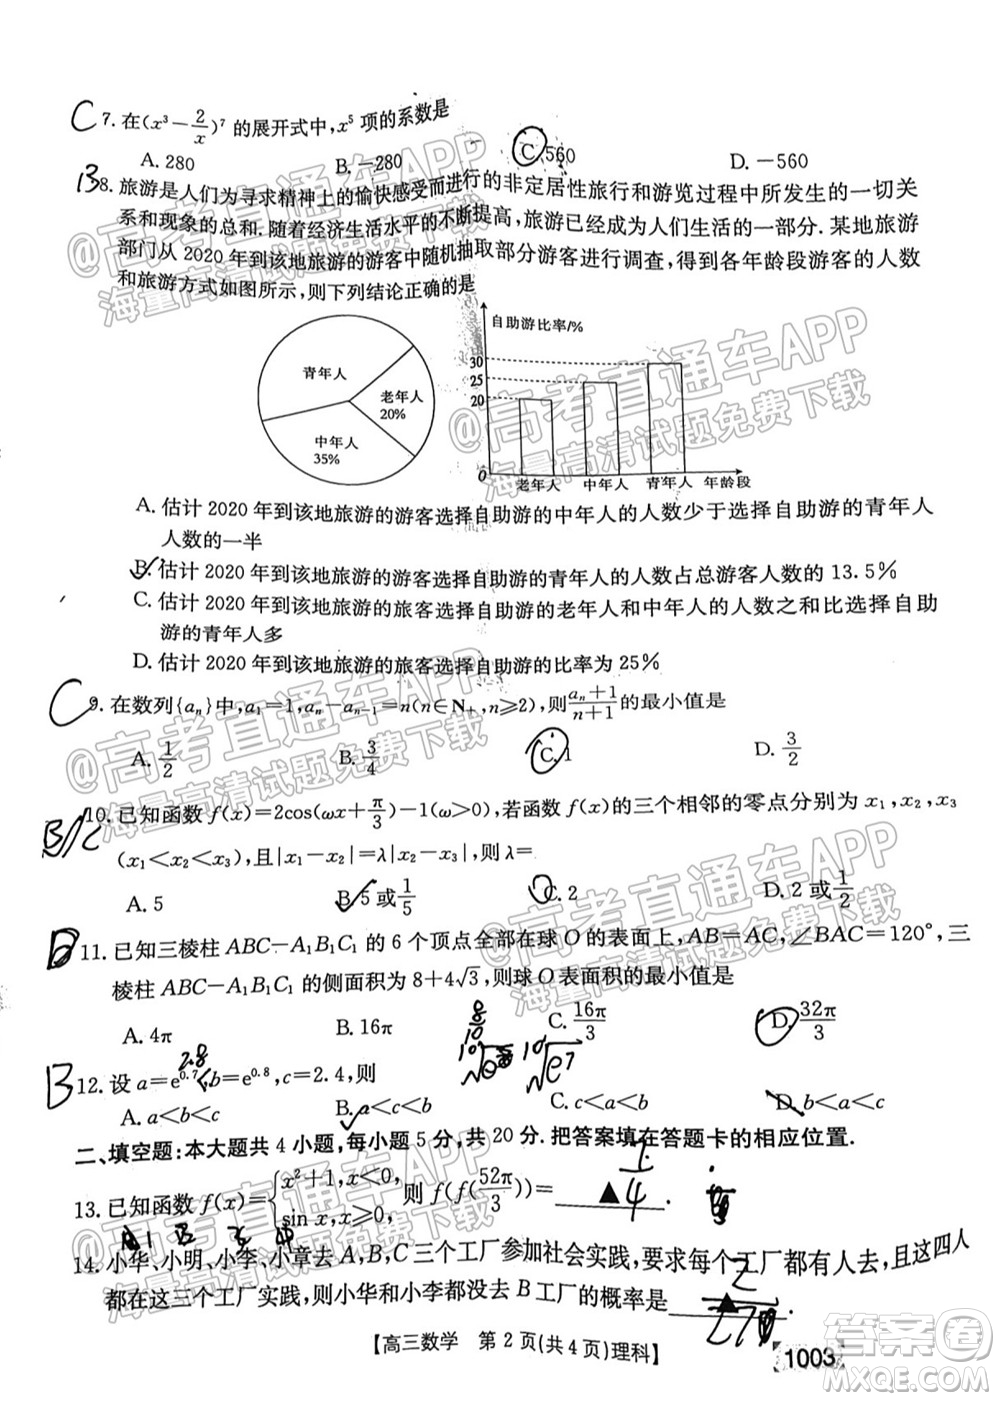 C 7. 在(x³-2/x)⁷ 的展开式中,x⁵ 项的系数是
A. 280 B. -280 C. 560 D. -560
B 8. 旅游是人们为寻求精神上的愉快感受而进行的非定居性旅行和游览过程中所发生的一切关
系和现象的总和. 随着经济生活水平的不断提高,旅游已经成为人们生活的一部分. 某地旅游
部门从 2020 年到该地旅游的游客中随机抽取部分游客进行调查,得到各年龄段游客的人数
和旅游方式如图所示,则下列结论正确的是
青年人
老年人
20%
中年人
35%
自助游比率/%
30
25
20
O
老年人 中年人 青年人 年龄段
A. 估计 2020 年到该地旅游的游客选择自助游的中年人的人数少于选择自助游的青年人
人数的一半
B. 估计 2020 年到该地旅游的游客选择自助游的青年人的人数占总游客人数的 13.5%
C. 估计 2020 年到该地旅游的旅客选择自助游的老年人和中年人的人数之和比选择自助
游的青年人多
D. 估计 2020 年到该地旅游的旅客选择自助游的比率为 25%
C 9. 在数列{aₙ}中,a₁=1,aₙ-aₙ₋₁=n(n∈N₊,n≥2),则(aₙ+1)/(n+1)的最小值是
A. 1/2 B. 3/4 C. 1 D. 3/2
B/C 10. 已知函数 f(x)=2cos(ωx+π/3)-1(ω>0),若函数 f(x)的三个相邻的零点分别为 x₁,x₂,x₃
(x₁<x₂<x₃),且|x₁-x₂|=λ|x₂-x₃|,则 λ=
A. 5 B. 5 或 1/5 C. 2 D. 2 或 1/2
11. 已知三棱柱 ABC-A₁B₁C₁ 的 6 个顶点全部在球 O 的表面上,AB=AC,∠BAC=120°,三
棱柱 ABC-A₁B₁C₁ 的侧面积为 8+4√3,则球 O 表面积的最小值是
A. 4π B. 16π C. 16π/3 D. 32π/3
B 12. 设 a=e⁰·⁷,b=e⁰·⁸,c=2.4,则
A. a<b<c B. a<c<b C. c<a<b D. b<c<a
二、填空题:本大题共 4 小题,每小题 5 分,共 20 分. 把答案填在答题卡的相应位置.
13. 已知函数 f(x)={x²+1,x<0, sin x,x≥0, 则 f(f(52π/3))= ▲ .
7/4
14. 小华、小明、小李、小章去 A,B,C 三个工厂参加社会实践,要求每个工厂都有人去,且这四人
都在这三个工厂实践,则小华和小李都没去 B 工厂的概率是 ▲ .
【高三数学 第 2 页(共 4 页)理科】
1003
@高考直通车APP
海量高清试题免费下载
答案圈
MXQE.COM